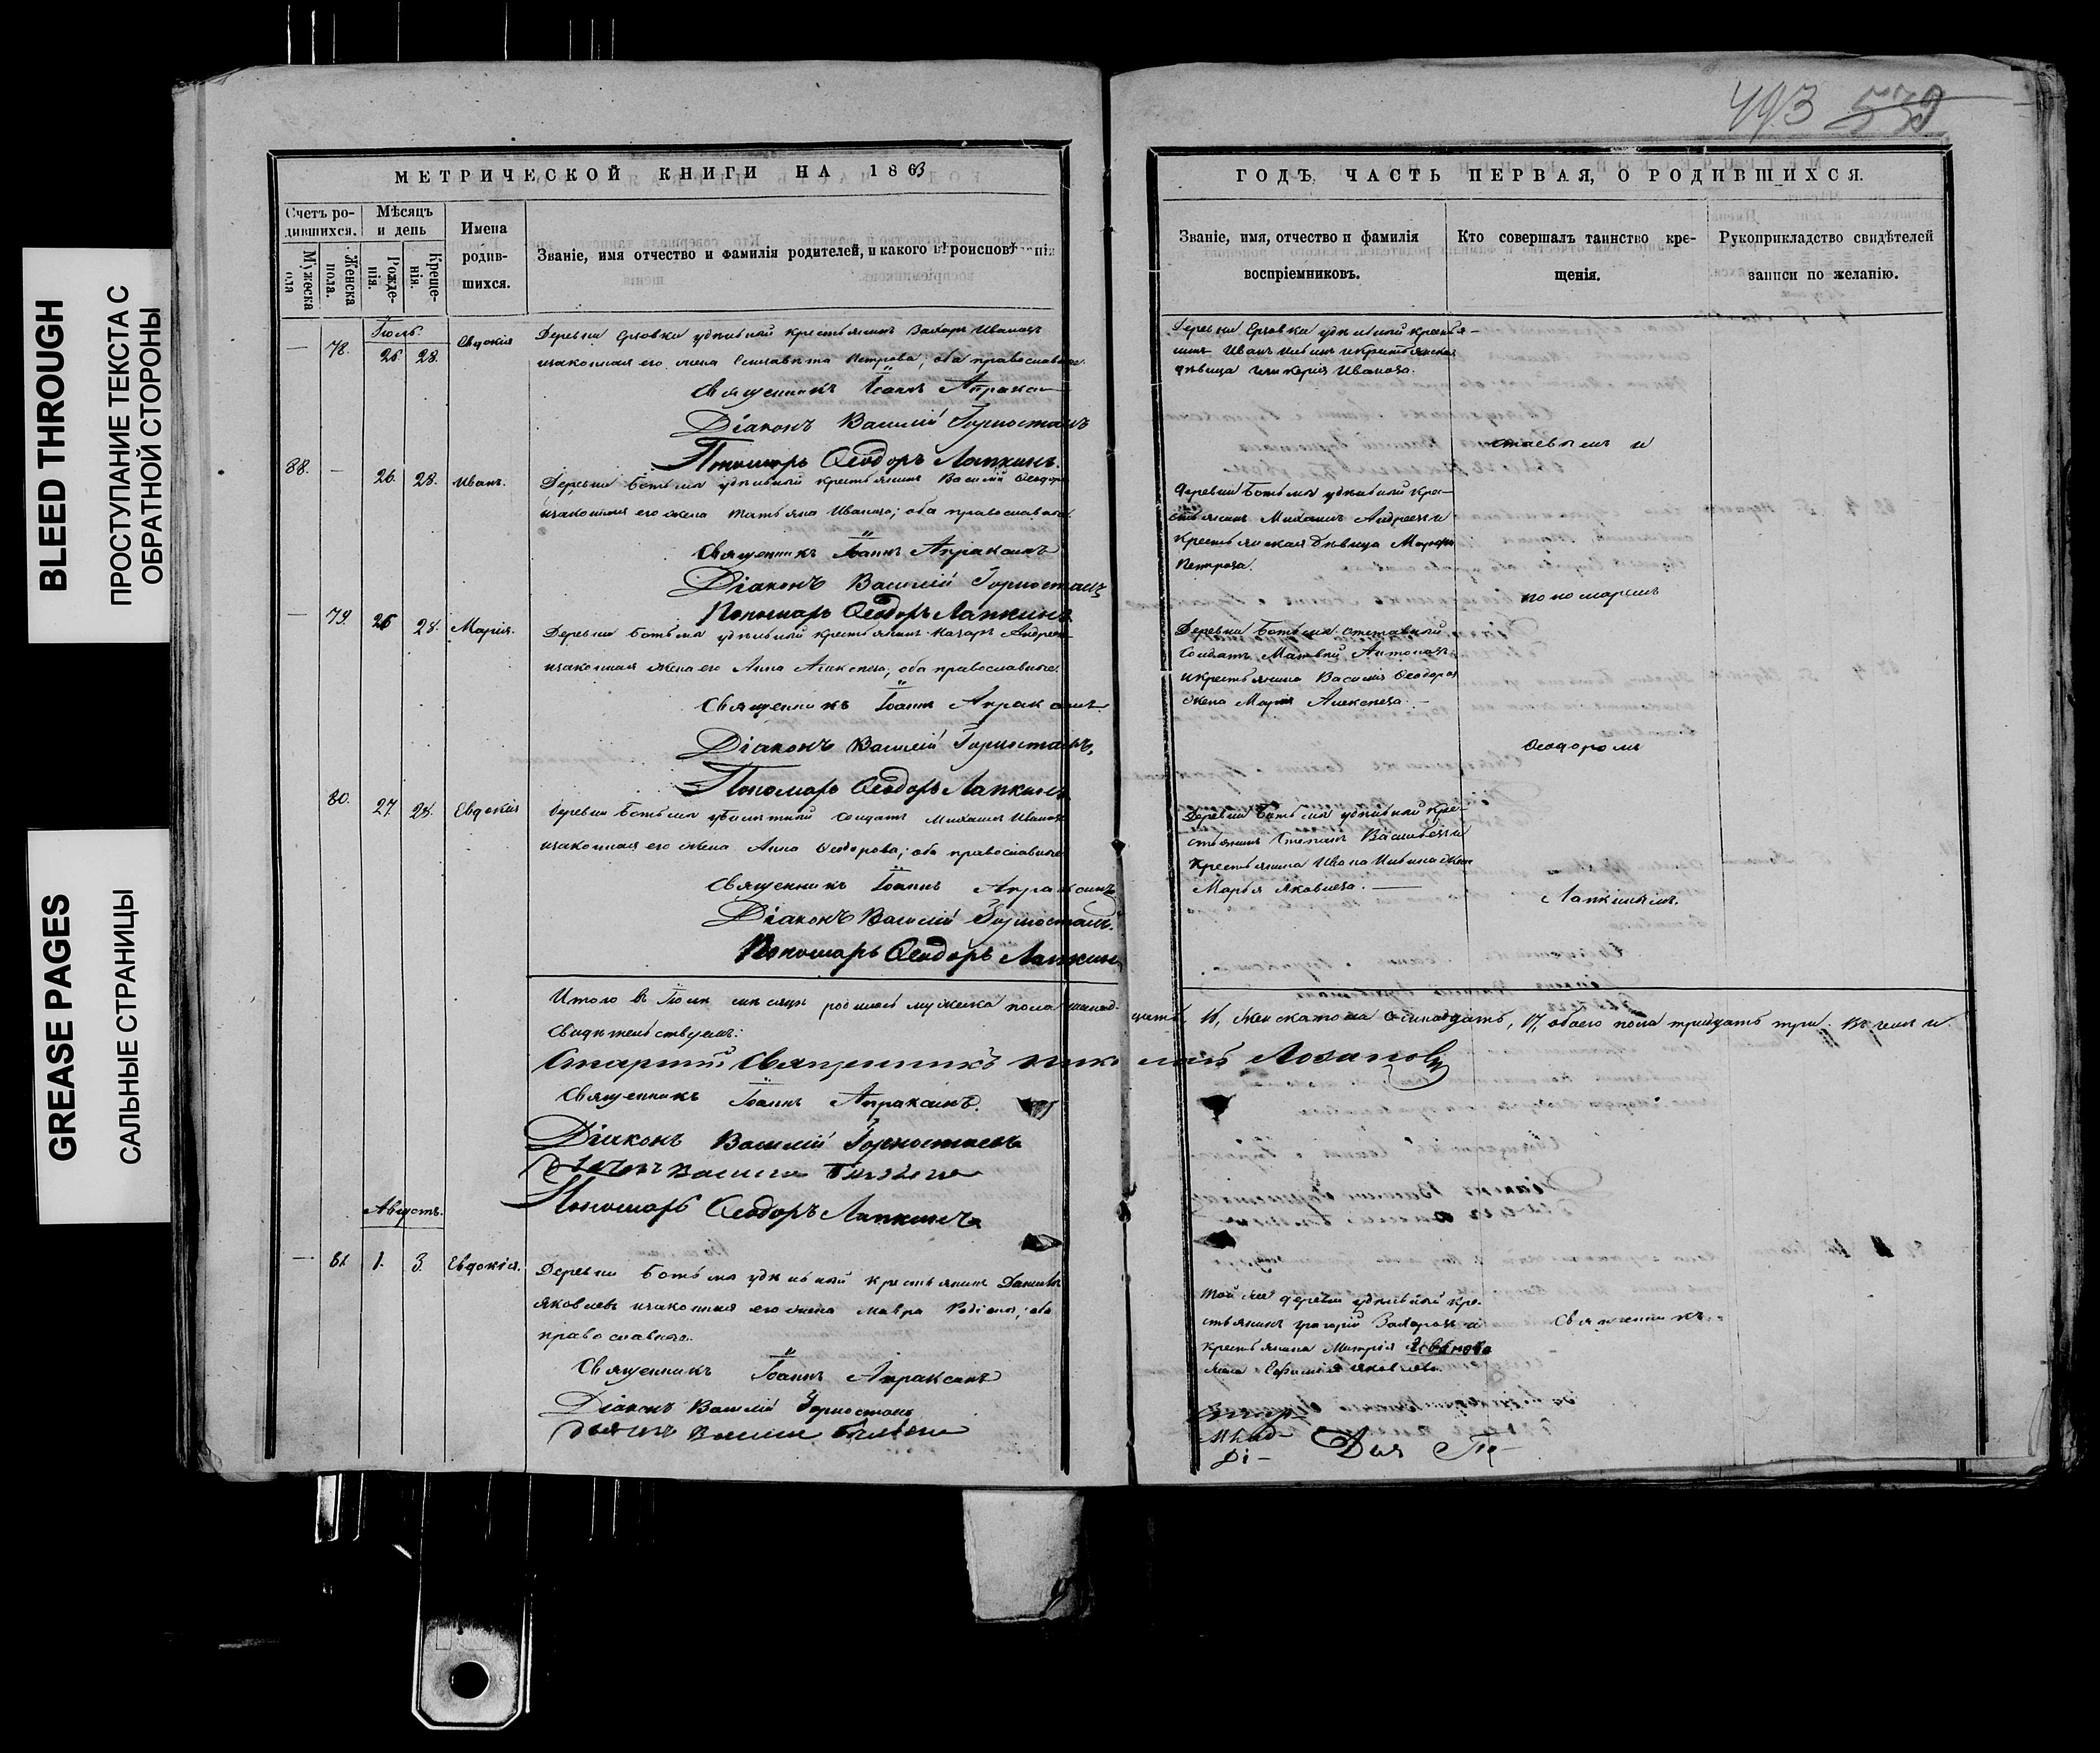 BLEED THROUGH
ПРОСТУПАНИЕ ТЕКСТА С
ОБРАТНОЙ СТОРОНЫ
GREASE PAGES
САЛЬНЫЕ СТРАНИЦЫ
МЕТРИЧЕСКОЙ КНИГИ НА 1863
Счетъ ро-
дившихся.
Мѣсяцъ
и день
Мужеска
пола
Женска
пола.
Рожде-
нія.
Креще-
нія.
Имена
родив-
шихся.
Званіе, имя отчество и фамилія родителей, и какого вѣроисповѣ нія
Іюль.
— 78. 26 28. Евдокія
Деревни Ерзовки удѣльный крестьянинъ Захаръ Ивановъ
изаконная его жена Елизавета Петрова; оба православные.
Священникъ Іоаннъ Апраксинъ
Діаконъ Василій Горностаевъ
Пономарь Ѳеодоръ Лапкинъ.
88. — 26. 28. Иванъ.
Деревни Ботьма удѣльный крестьянинъ Василій Ѳеодоровъ
изаконная его жена Татьяна Иванова; оба православные.
Священникъ Іоаннъ Апраксинъ
Діаконъ Василій Горностаевъ
Пономарь Ѳеодоръ Лапкинъ.
— 79. 26 28. Марія.
Деревни Ботьма удѣльный крестьянинъ Назаръ Андреевъ
изаконная жена его Анна Алексѣева; оба православные.
Священникъ Іоаннъ Апраксинъ
Діаконъ Василій Горностаевъ,
Пономарь Ѳеодоръ Лапкинъ.
80. 27. 28. Евдокія
Деревни Ботьма солдатъ Михаилъ Ивановъ
изаконная его жена Анна Ѳеодорова; оба православные
Священникъ Іоаннъ Апраксинъ
Діаконъ Василій Горностаевъ.
Пономарь Ѳеодоръ Лапкинъ
Итого въ Іюлѣ мѣсяцѣ родилось мужеска пола шестнад-
Свидѣтельствуемъ:
Старшій Священникъ Николай Лозановъ
Священникъ Іоаннъ Апраксинъ.
Діаконъ Василій Горностаевъ
Пономарь Ѳеодоръ Лапкинъ
Августъ.
— 81. 1. 3. Евдокія.
Деревни Ботьма удѣльный крестьянинъ Даніилъ
Яковлевъ изаконная его жена Мавра Родіонова; оба
православные.
Священникъ Іоаннъ Апраксинъ
Діаконъ Василій Горностаевъ
493 539
ГОДЪ, ЧАСТЬ ПЕРВАЯ, О РОДИВШИХСЯ.
Званіе, имя, отчество и фамилія
воспріемниковъ.
Кто совершалъ таинство кре-
щенія.
Рукоприкладство свидѣтелей
записи по желанію.
Деревни Ерзовки удѣльный крестья-
нинъ Иванъ икрестьянская
дѣвица Гликерія Иванова.
стаевымъ и
Деревни Ботьма удѣльный кре-
стьянинъ Михаилъ Андреевъ и
крестьянская дѣвица Марѳа
Петрова.
пономаремъ
Деревни Ботьма отставный
Солдатъ Матвѣй Антоновъ
икрестьянина Василія Ѳеодорова
жена Марія Алексѣева. —
Ѳеодоромъ
Деревни Ботьма удѣльный кре-
стьянинъ Степанъ Васильевъ и
крестьянина Ивана жена
Марья Яковлева. —
Лапкинымъ.
цать 16, женска пола семнадцать, 17, обоего пола тридцать три. въ чемъ и
Той же деревни удѣльный кре-
стьянинъ Григорій Захаровъ и
крестьянина Митрія
жена Ефимія Яковлева.
Священникъ
Стар-
Млад-
Ді-